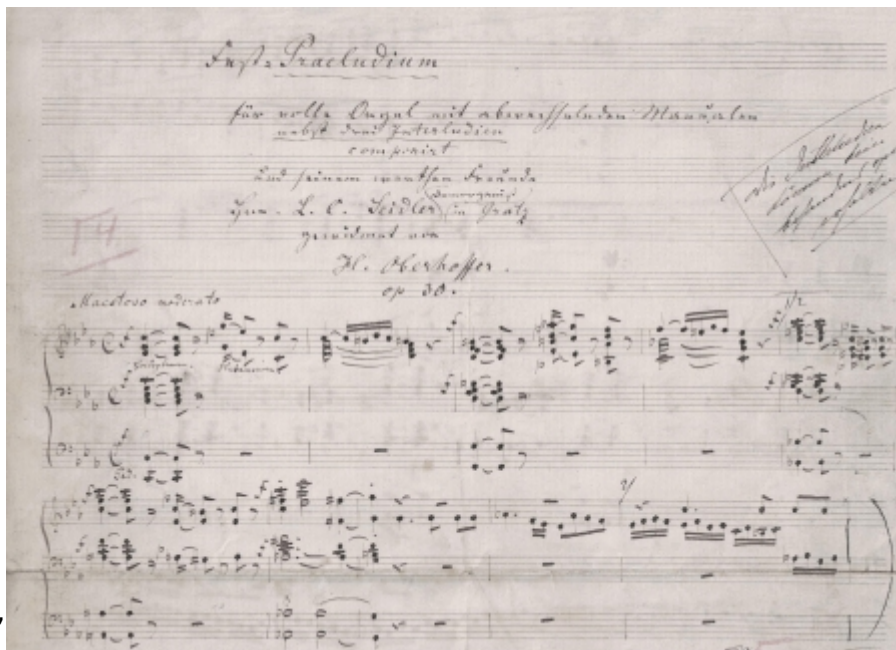 Fest-Praeludium
für volle Orgel mit abwechselnden Manualen
nebst drei Interludien
componirt
und seinem werthen Freunde
Hrn. L. C. Seidler in Gratz
gewidmet von
H. Oberhoffer.
op 30.
Die Interludien
können
Maestoso moderato